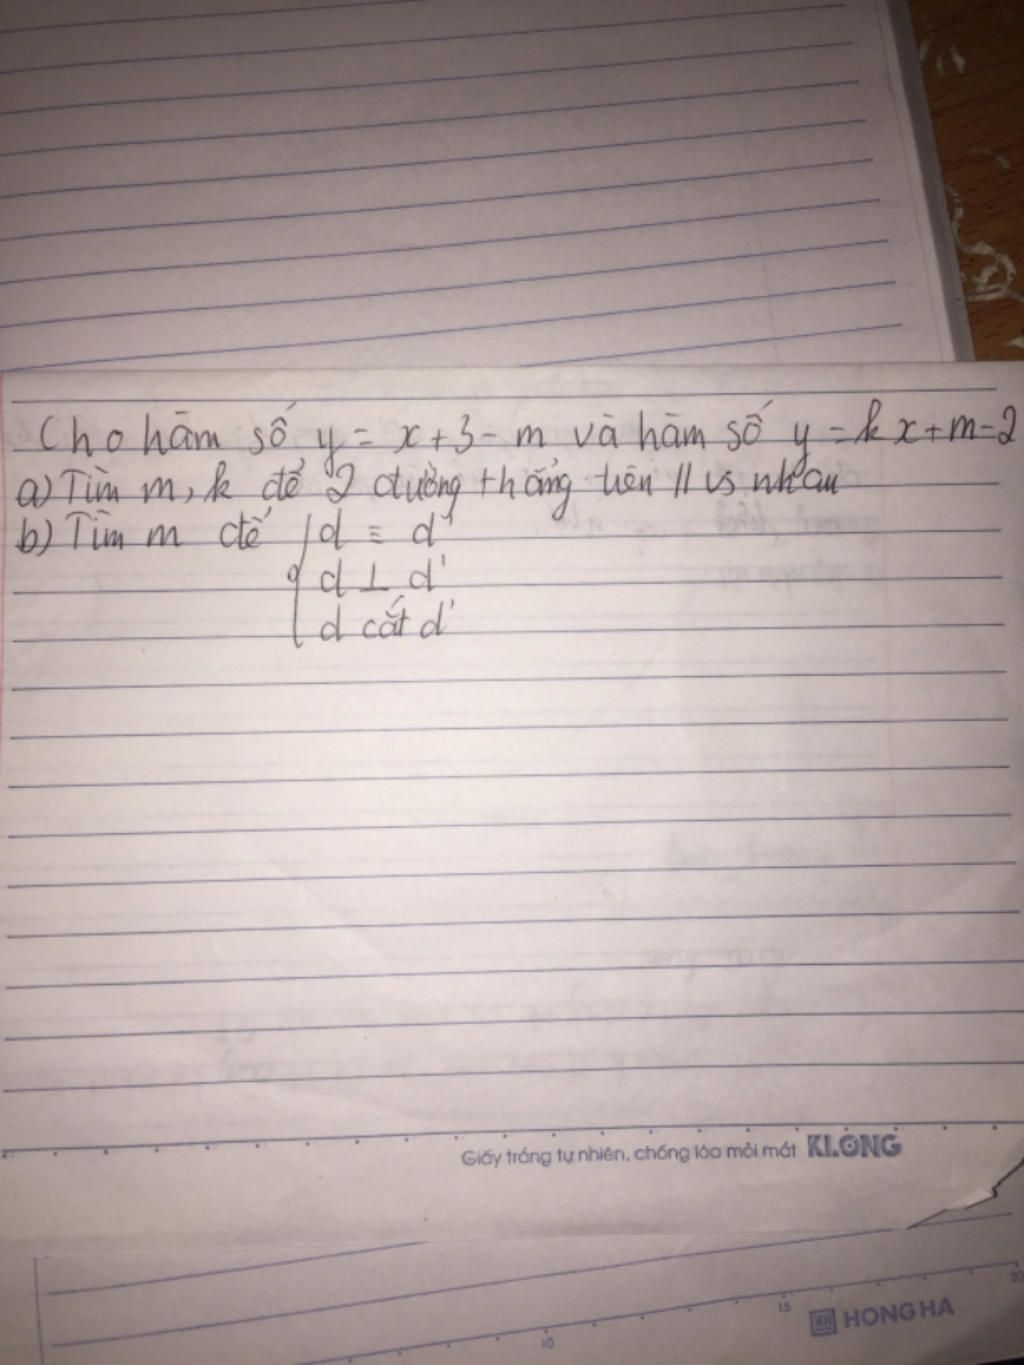 Cho hàm số y = x + 3 - m và hàm số y = k x + m - 2
a) Tìm m, k để 2 đường thẳng trên // vs nhau
b) Tìm m để { d ≡ d'
d ⊥ d'
d cắt d'
Giấy trắng tự nhiên, chống lóa mỏi mắt KLONG
10 15 HONG HA 20